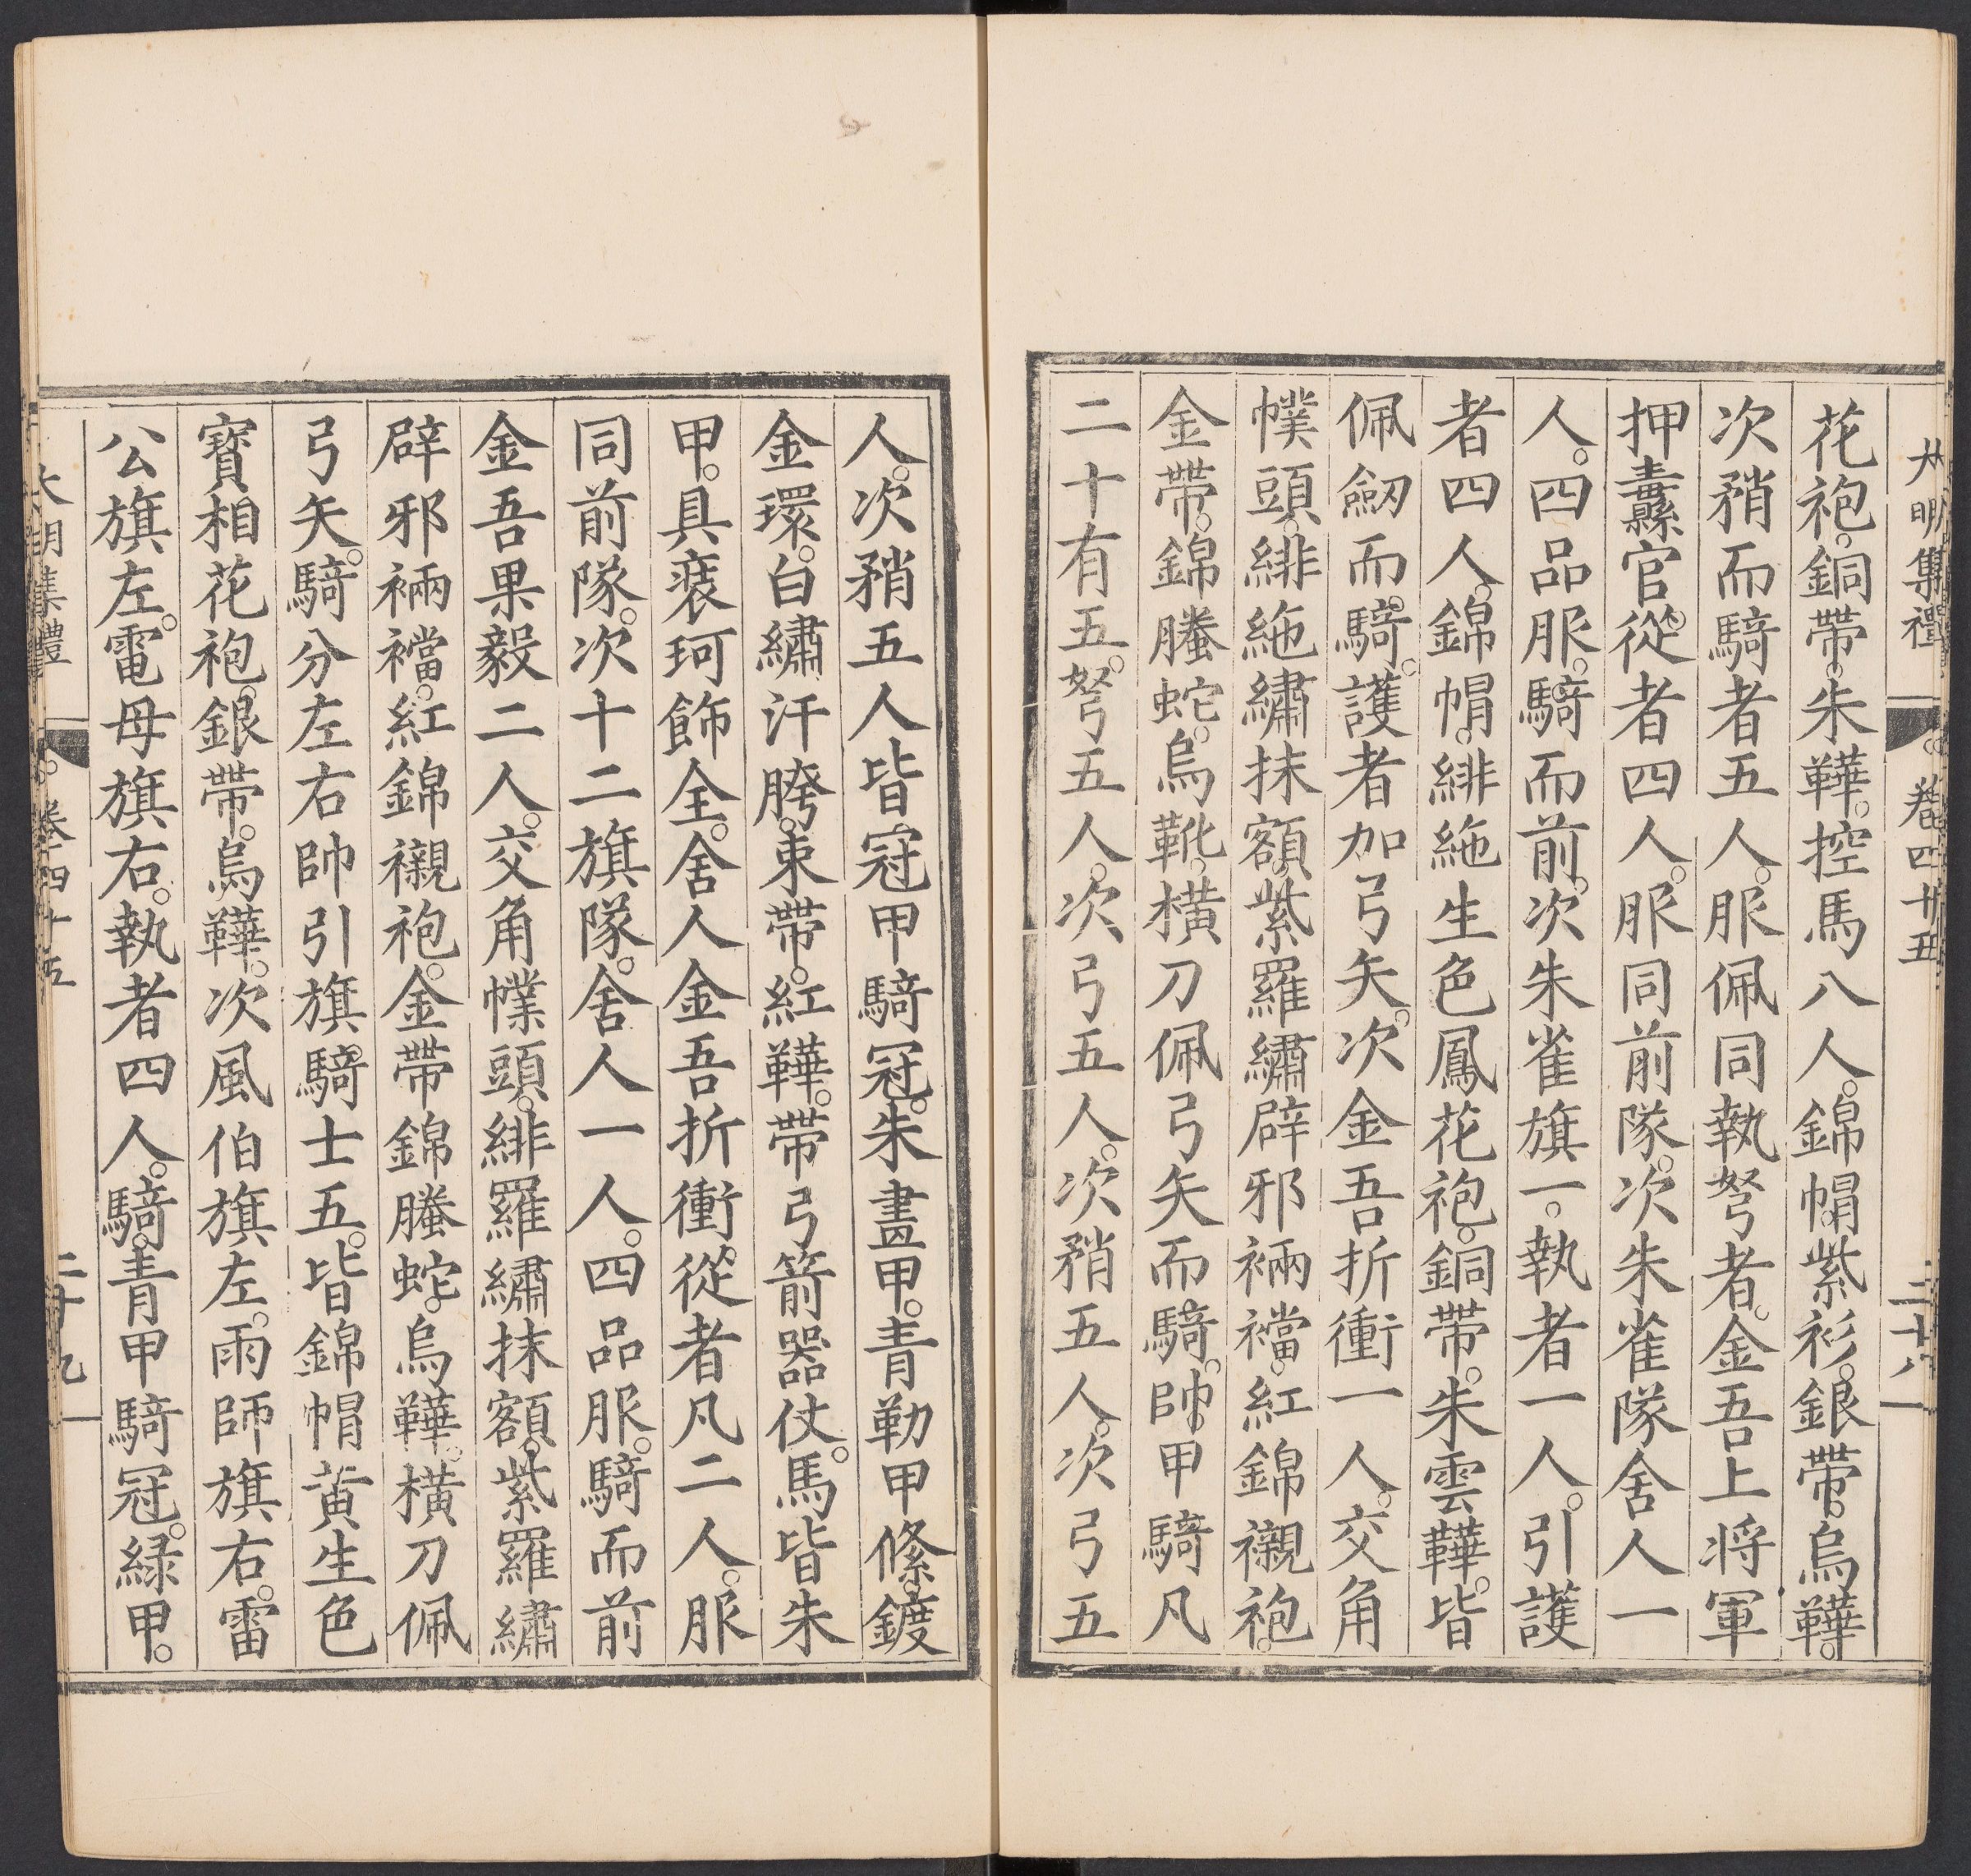 大明集禮 卷四十五 二十八
花袍。銅帶。朱鞾。控馬八人。錦帽。紫衫。銀帶。烏鞾。
次矟而騎者五人。服佩同執弩者。金吾上将軍
押纛官。從者四人。服同前隊。次朱雀隊舍人一
人。四品服。騎而前。次朱雀旗一。執者一人。引護
者四人。錦帽。緋絁生色鳳花袍。銅帶。朱雲鞾。皆
佩劒而騎。護者加弓矢。次金吾折衝一人。交角
幞頭。緋絁繡抹額。紫羅繡辟邪裲襠。紅錦襯袍。
金帶。錦螣蛇。烏靴。橫刀佩弓矢而騎。帥甲騎凡
二十有五。弩五人。次弓五人。次矟五人。次弓五
人。次矟五人皆冠甲騎冠。朱畫甲。青勒甲絛。鍍
金環。白繡汗胯。束帶。紅鞾。帶弓箭器仗。馬皆朱
甲。具裝珂飾全。舍人金吾折衝。從者凡二人。服
同前隊。次十二旗隊。舍人一人。四品服。騎而前
金吾果毅二人。交角幞頭。緋羅繡抹額。紫羅繡
辟邪裲襠。紅錦襯袍。金帶錦螣蛇。烏鞾。橫刀佩
弓矢。騎分左右帥引旗騎士五。皆錦帽黃生色
寶相花袍。銀帶。烏鞾。次風伯旗左。雨師旗右。雷
公旗左。電母旗右。執者四人。騎。青甲騎冠。緑甲。
大明集禮 卷四十五 二十九